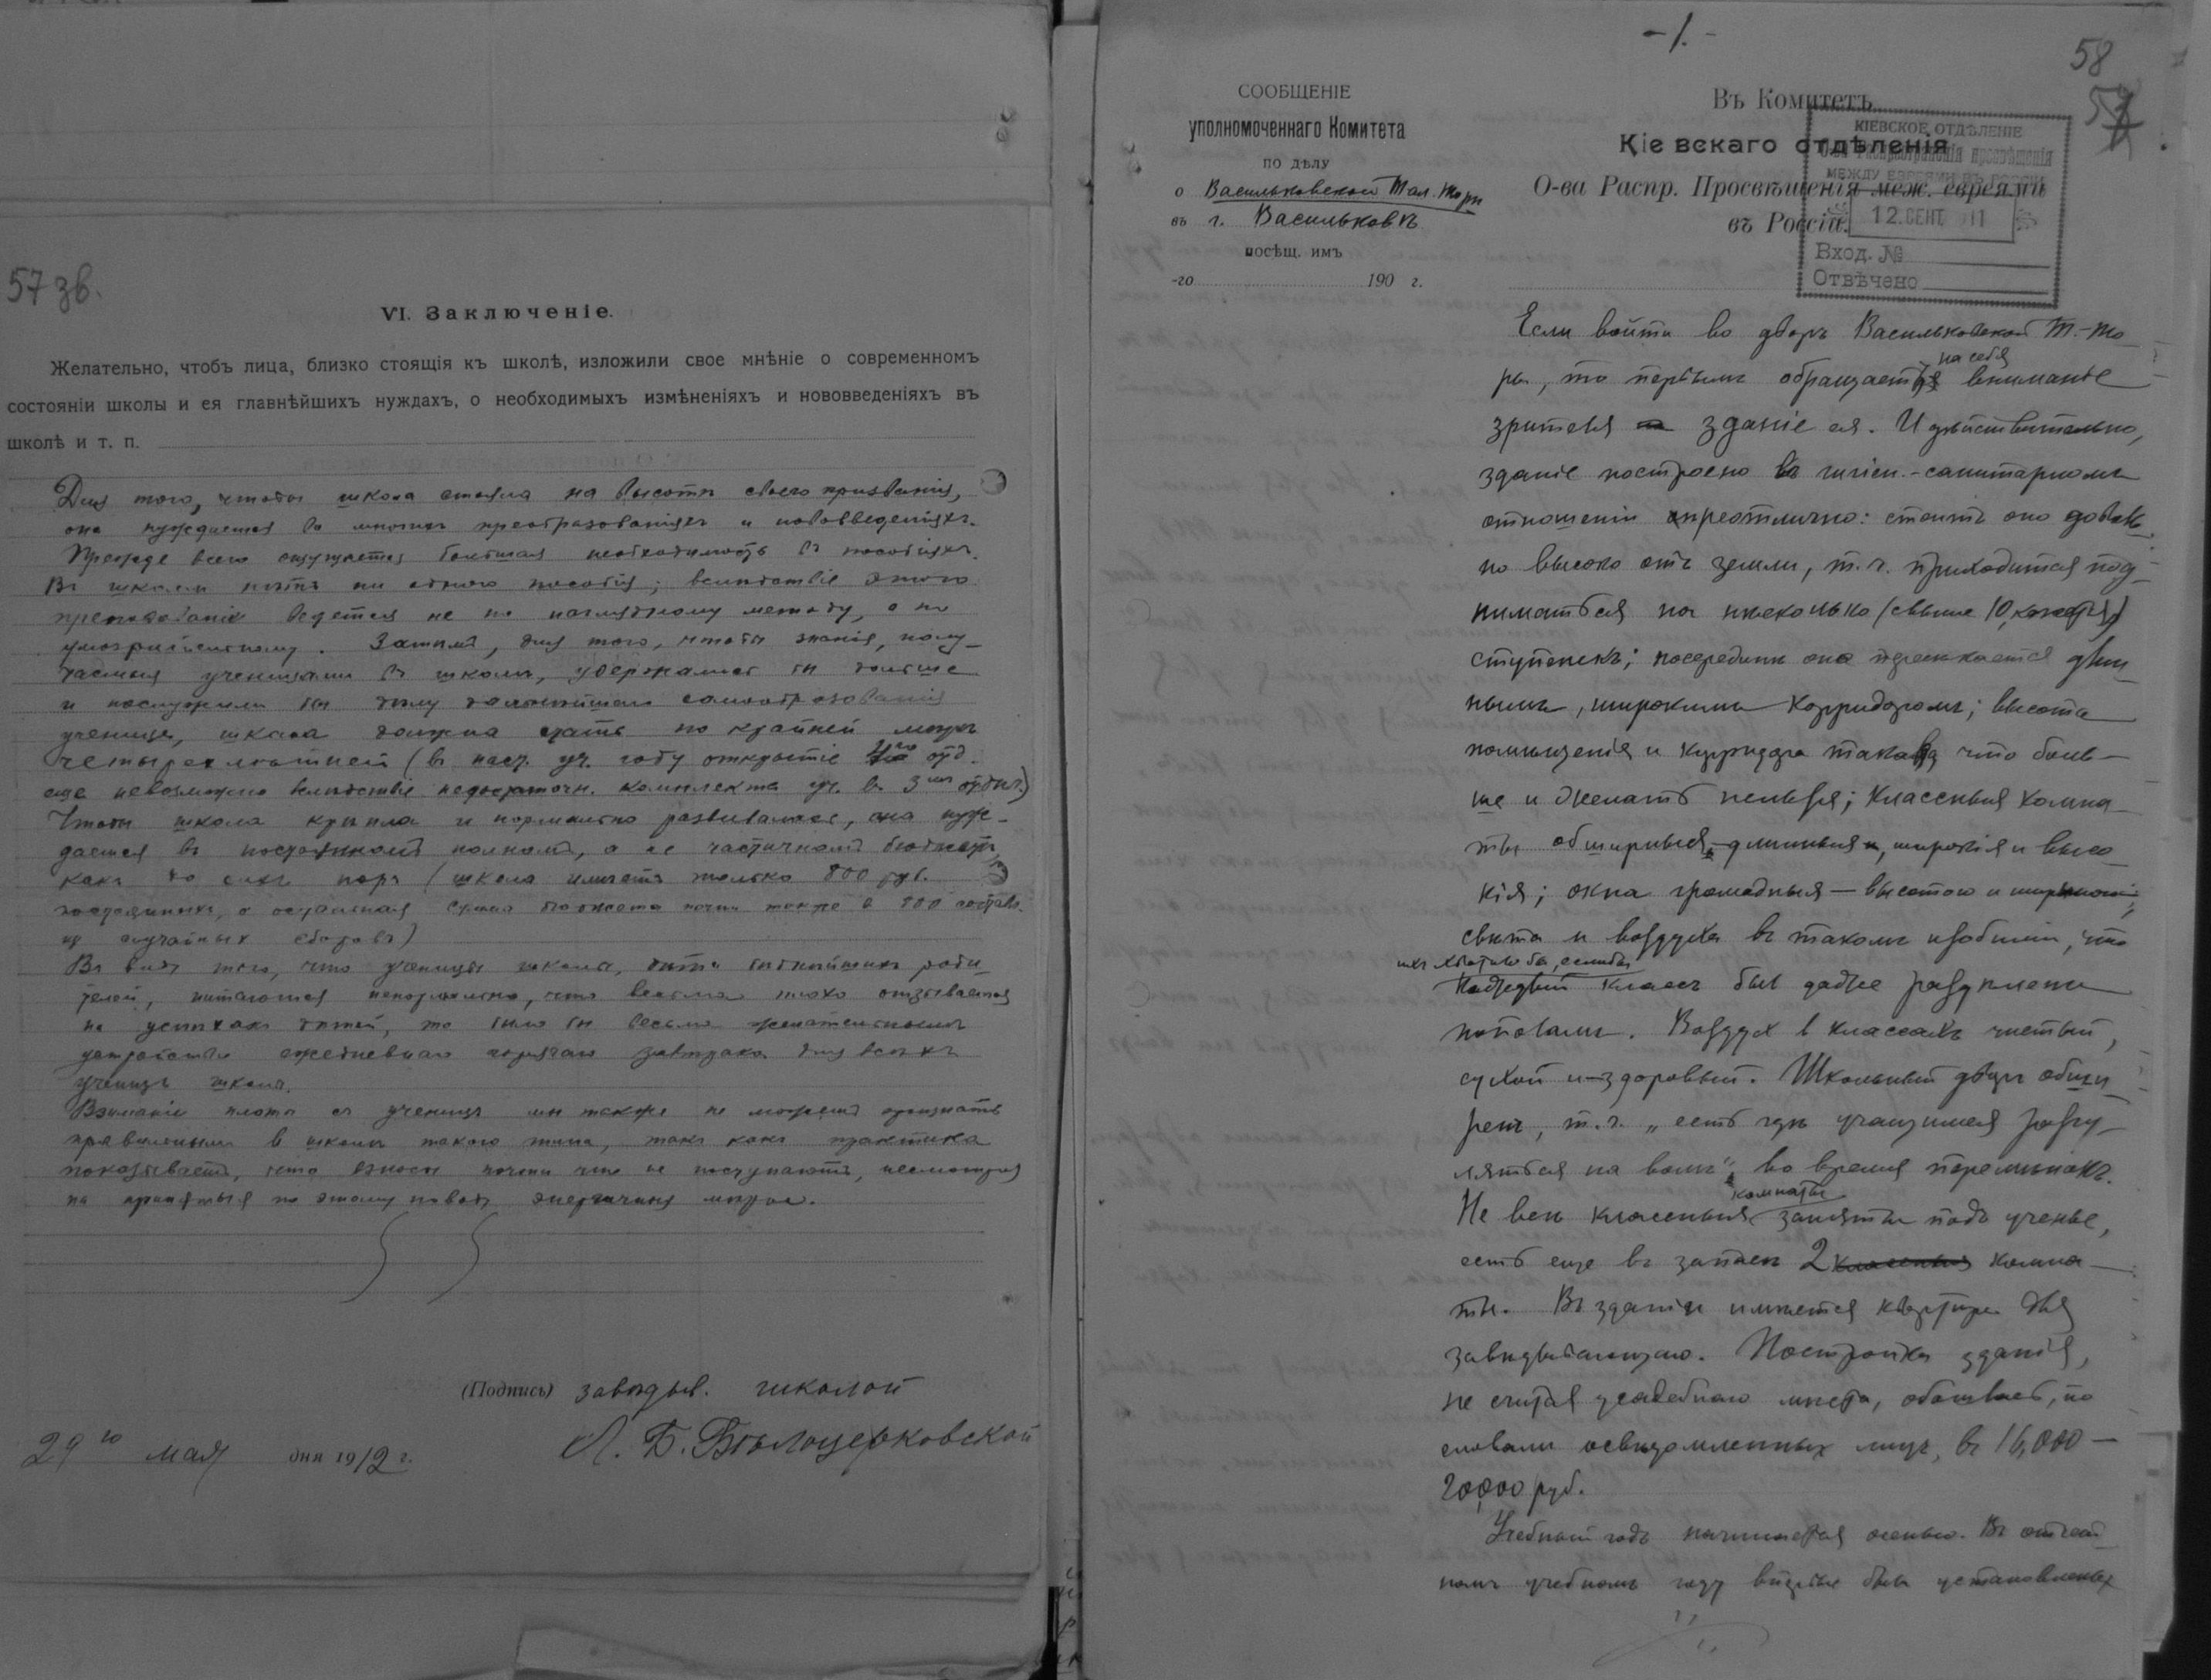 57 зв.
VI. Заключеніе.
Желательно, чтобъ лица, близко стоящія къ школѣ, изложили свое мнѣніе о современномъ
состояніи школы и ея главнѣйшихъ нуждахъ, о необходимыхъ измѣненіяхъ и нововведеніяхъ въ
школѣ и т. п.
Для того, чтобы школа стояла на высотѣ своего призванія,
она нуждается во многихъ преобразованіяхъ и нововведеніяхъ.
Прежде всего ощущается большая необходимость въ пособіяхъ.
Въ школѣ нѣтъ ни одного пособія; вслѣдствіе этого
преподаваніе ведется не по наглядному методу, а по
умозрительному. Затѣмъ, для того, чтобы знанія, полу-
чаемыя ученицами въ школѣ, удержались бы дольше
и послужили бы дѣлу дальнѣйшаго самообразованія
ученицъ, школа должна стать по крайней мѣрѣ
четырехлѣтней (въ наст. уч. году открытіе 4го отд.
еще невозможно вслѣдствіе недостаточн. комплекта уч. въ 3мъ отдѣл.)
Чтобы школа крѣпла и нормально развивалась, она нуж-
дается въ постоянномъ полномъ, а не частичномъ бюджетѣ,
какъ до сихъ поръ (школа имѣетъ только 800 руб.
постоянныхъ, а остальная сумма бюджета почти также въ 800 составл.
из случайных сборовъ)
Въ виду того, что ученицы школы, дѣти бѣднѣйшихъ роди-
телей, питаются ненормально, что весьма плохо отзывается
на успѣхахъ дѣтей, то было бы весьма желательнымъ
устройство ежедневнаго горячаго завтрака для всѣхъ
ученицъ школы.
Взиманіе платы съ ученицъ мы также не можемъ признать
правильнымъ в школѣ такого типа, такъ какъ практика
показываетъ, что взносы почти что не поступаютъ, несмотря
на принятыя по этому поводу энергичныя мѣры.
(Подпись) завѣдыв. школой
Л. Б. Бѣлоцерковской
29го мая дня 1912 г.
-1.-
58
57
СООБЩЕНІЕ
уполномоченнаго Комитета
ПО ДѢЛУ
о Васильковской Тал. Торы
въ г. Васильковѣ
посѣщ. имъ
-го 190 г.
Въ Комитетъ
Кіевскаго отдѣленія
О-ва Распр. Просвѣщенія меж. евреями
въ Россіи.
КІЕВСКОЕ ОТДѢЛЕНІЕ
О-ва Распространенія просвѣщенія
МЕЖДУ ЕВРЕЯМИ ВЪ РОССІИ
12. СЕНТ 11
Вход. №
Отвѣчено
Если войти во дворъ Васильковской Т.-То-
ры, то первымъ обращаетъ на себя вниманіе
зрителя зданіе ея. И дѣйствительно,
зданіе построено въ гигіен.-санитарномъ
отношеніи преотлично: стоитъ оно доволь-
но высоко отъ земли, т. ч. приходится под-
ниматься на нѣсколько (свыше 10, кажется)
ступенекъ; посерединѣ оно пересѣкается длин-
нымъ, широкимъ корридоромъ; высота
помѣщенія и корридора такова, что боль-
ше и желать нельзя; классныя комна-
ты обширныя, длинныя, широкія и высо-
кія; окна громадныя — высотою и шириною;
свѣта и воздуха въ такомъ изобиліи, что
ихъ хватило бы, еслибы
каждый классъ былъ даже раздѣленъ
пополамъ. Воздух в классахъ чистый,
сухой и здоровый. Школьный дворъ обши-
ренъ, т. ч. „есть гдѣ учащимся разгу-
ляться на волѣ" во время перемѣнокъ.
Не всѣ классныя комнаты заняты подъ ученье,
есть еще въ запасѣ 2 классныя комна-
ты. Въ зданіи имѣется квартира для
завѣдывающаго. Постройка зданія,
не считая усадебнаго мѣста, обошлась, по
словамъ освѣдомленныхъ лицъ, въ 16,000 —
20,000 руб.
Учебный годъ начинается осенью. Въ отчет-
номъ учебномъ году были установлены